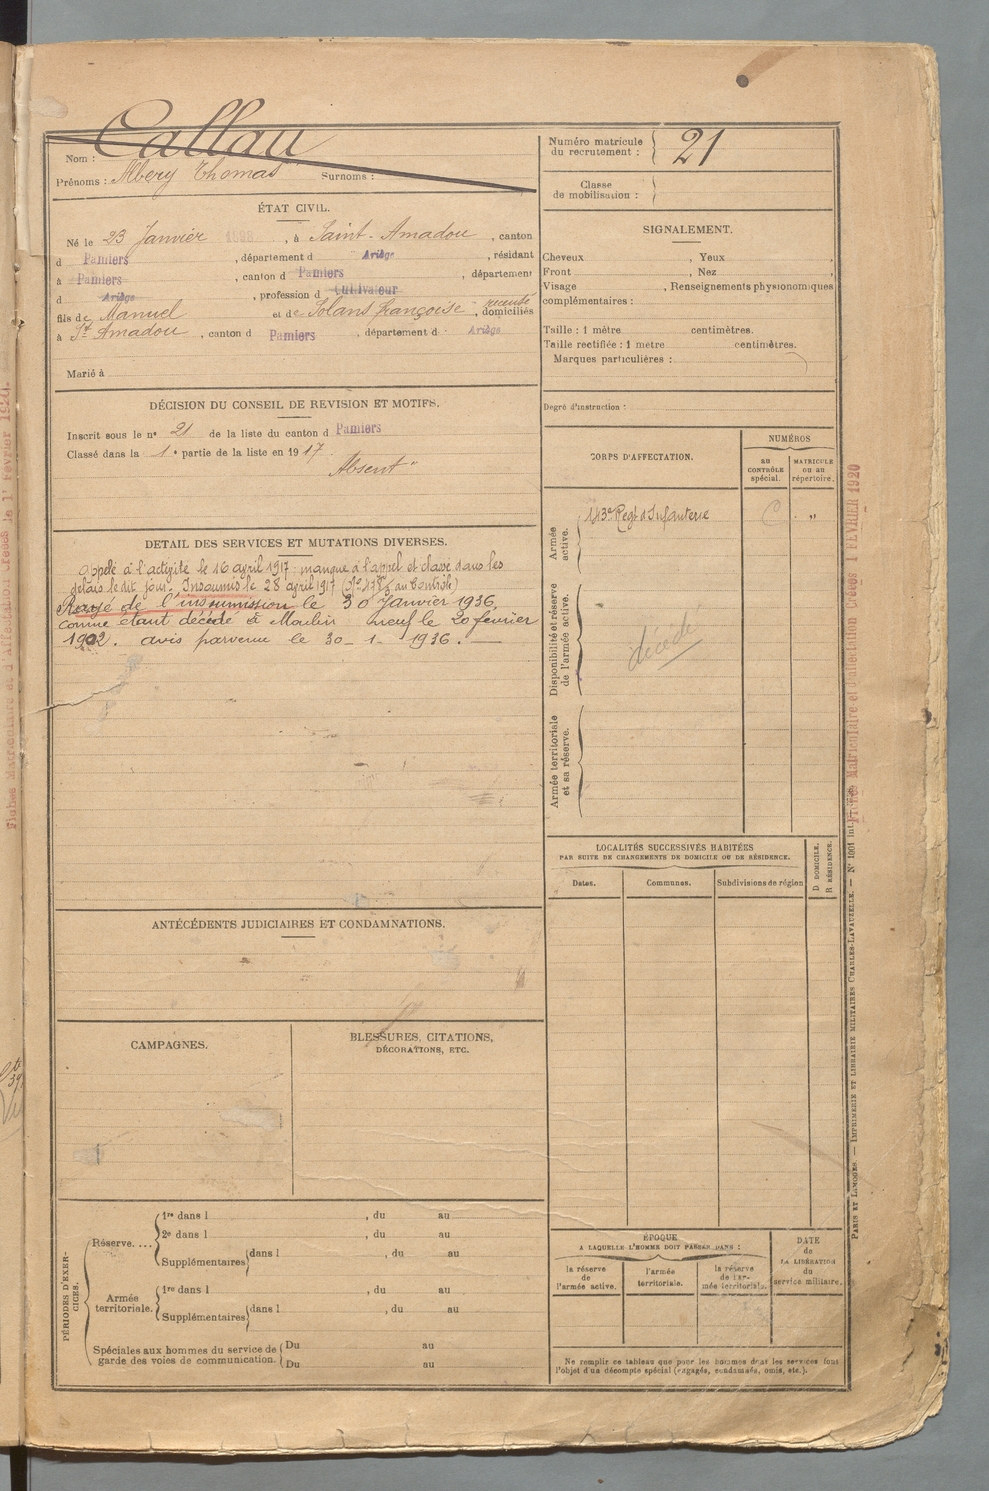 Callau
Nom :
Prénoms : Albery Thomas Surnoms :
Numéro matricule
du recrutement : 21
Classe
de mobilisation :
ÉTAT CIVIL.
Né le 23 Janvier 1898, à Saint-Amadou, canton
d Pamiers, département d Ariège, résidant
à Pamiers, canton d Pamiers, département
d Ariège, profession d cultivateur
fils de Manuel et de Solans françoise, domiciliés
à St Amadou, canton d Pamiers, département d Ariège
Marié à
SIGNALEMENT.
Cheveux , Yeux ,
Front , Nez ,
Visage , Renseignements physionomiques
complémentaires :
Taille : 1 mètre centimètres.
Taille rectifiée : 1 mètre centimètres.
Marques particulières :
Degré d'instruction :
DÉCISION DU CONSEIL DE REVISION ET MOTIFS.
Inscrit sous le n° 21 de la liste du canton d Pamiers
Classé dans la 1e partie de la liste en 1917.
Absent"
DÉTAIL DES SERVICES ET MUTATIONS DIVERSES.
Appelé à l'activité le 16 avril 1917 manque à l'appel et classé dans les
délais le dit jour. Insoumis le 28 avril 1917 au Contrôle)
Rayé de l'insoumission le 30 Janvier 1936.
comme étant décédé à Moulin neuf le 20 février
1902. avis parvenu le 30-1-1936.
CORPS D'AFFECTATION.
NUMÉROS
au
CONTRÔLE
spécial.
MATRICULE
ou au
répertoire.
Armée
active.
143e Regt d'Infanterie C "
Disponibilité et réserve
de l'armée active.
décédé
Armée territoriale
et sa réserve.
LOCALITÉS SUCCESSIVES HABITÉES
PAR SUITE DE CHANGEMENTS DE DOMICILE OU DE RÉSIDENCE.
Dates. Communes. Subdivisions de région
D DOMICILE.
R RÉSIDENCE.
ANTÉCÉDENTS JUDICIAIRES ET CONDAMNATIONS.
CAMPAGNES.
BLESSURES, CITATIONS,
DÉCORATIONS, ETC.
PÉRIODES D'EXER-
CICES.
Réserve....
1re dans l , du au
2e dans l , du au
Supplémentaires dans l , du au
Armée
territoriale.
1re dans l , du au
Supplémentaires dans l , du au
Spéciales aux hommes du service de
garde des voies de communication.
Du au
Du au
ÉPOQUE
A LAQUELLE L'HOMME DOIT PASSER DANS :
la réserve
de
l'armée active.
l'armée
territoriale.
la réserve
de l'ar-
mée territoriale.
DATE
de
LA LIBÉRATION
du
service militaire.
Ne remplir ce tableau que pour les hommes dont les services font
l'objet d'un décompte spécial (engagés, condamnés, omis, etc.).
Fiches Matriculaire et d'affectation Créées 1 FÉVRIER 1920
PARIS ET LIMOGES. — IMPRIMERIE ET LIBRAIRIE MILITAIRES CHARLES-LAVAUZELLE. — N° 1001 int.
Fiches Matriculaire et d'Affectation Créées le 1r Février 1920.